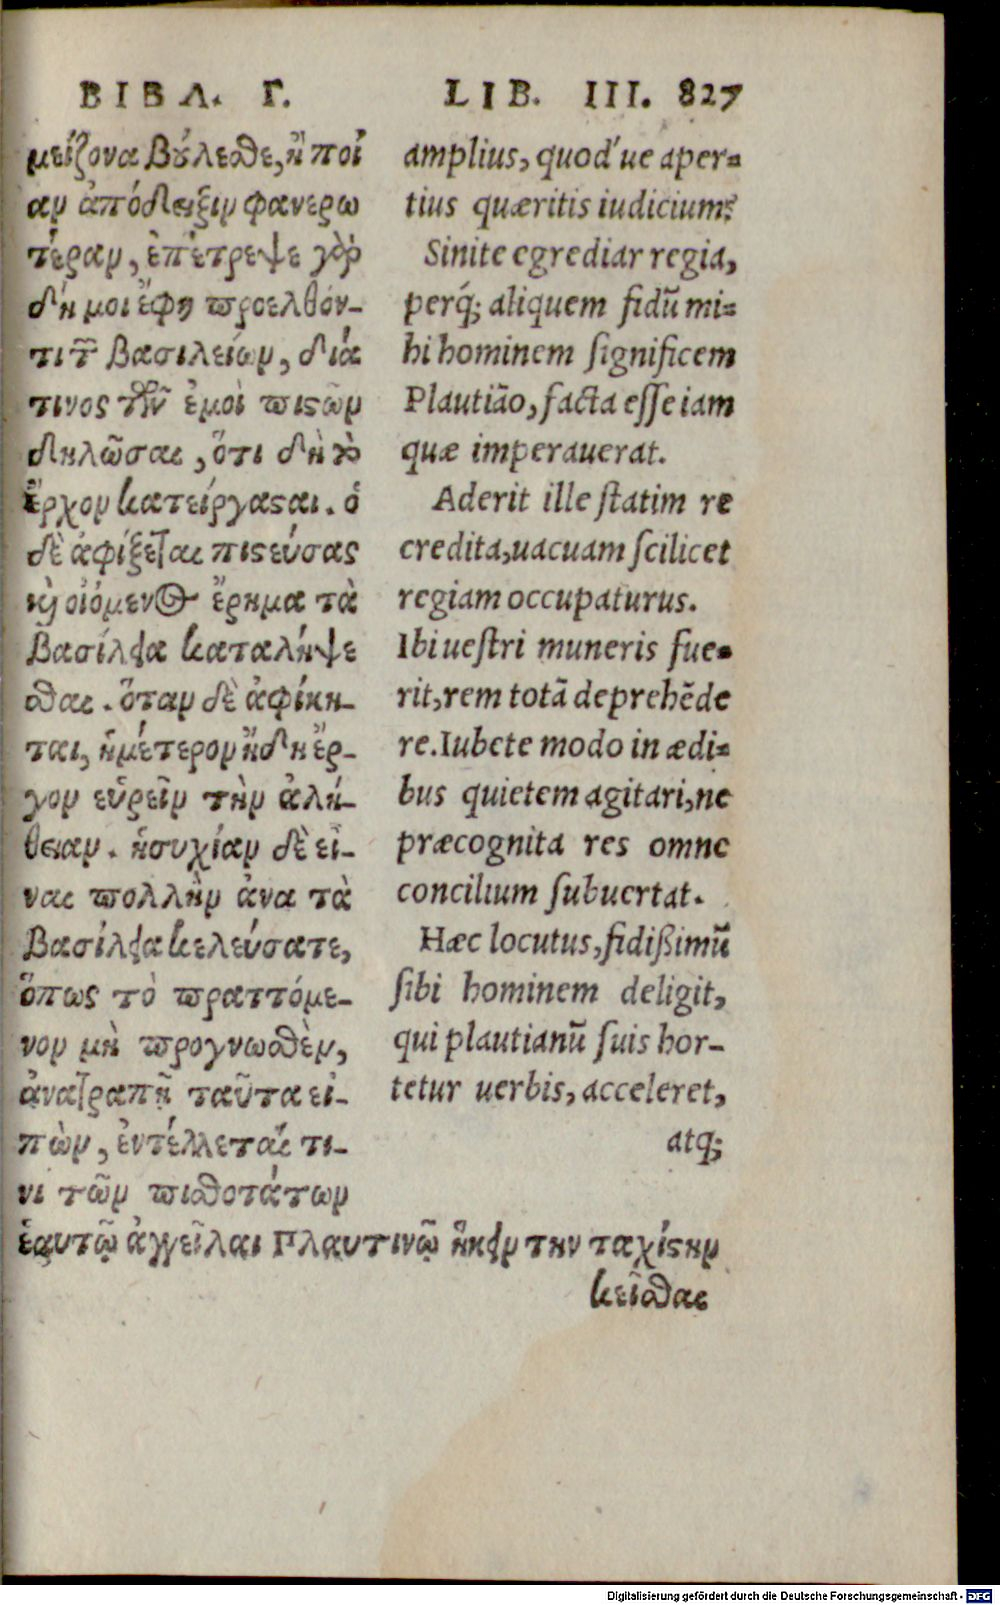 ΒΙΒΛ. Γ.
μείζονα βȣ́λεσθε, ἢ ποί
αν ἀπόδειξιν φανερω
τέραν, ἐπέτρεψε γὰρ
δή μοι ἔφη προελθόν-
τι τ̃ βασιλείων, διά
τινος τῶν ἐμοὶ πιςῶν
δηλῶσαι, ὅτι δὴ τὸ
ἔρχον κατείργαςαι. ὁ
δὲ ἀφίξεται πιςεύσας
ϗ οἰόμενος ἔρημα τὰ
βασίλεια καταλήψε
σθαι. ὅταν δὲ ἀφίκη-
ται, ἡμέτερον ἤδη ἔρ-
γον εὑρεῖν τὴν ἀλή-
θειαν. ἡσυχίαν δὲ εἶ-
ναι πολλὴν ἀνα τὰ
βασίλεια κελεύσατε,
ὅπως τὸ πραττόμε-
νον μὴ προγνωσθὲν,
ἀνατραπῇ ταῦτα εἰ-
πὼν, ἐντέλλεταί τι-
νι τῶν πισθοτάτων
ἑαυτῷ ἀγγεῖλαι Πλαυτινῷ ἥκειν την ταχίςην
κεῖσθαι
LIB. III. 827
amplius, quod´ue aper=
tius quæritis iudicium?
Sinite egrediar regia,
perq́; aliquem fidũ mi=
hi hominem ſignificem
Plautiāo, facta eſſe iam
quæ imperauerat.
Aderit ille ſtatim re
credita, uacuam ſcilicet
regiam occupaturus.
Ibi ueſtri muneris fue=
rit, rem totā deprehēde
re. Iubete modo in ædi=
bus quietem agitari, ne
præcognita res omne
concilium ſubuertat.
Hæc locutus, fidißimũ
ſibi hominem deligit,
qui plautianũ ſuis hor-
tetur uerbis, acceleret,
atq;
Digitalisierung gefördert durch die Deutsche Forschungsgemeinschaft - DFG